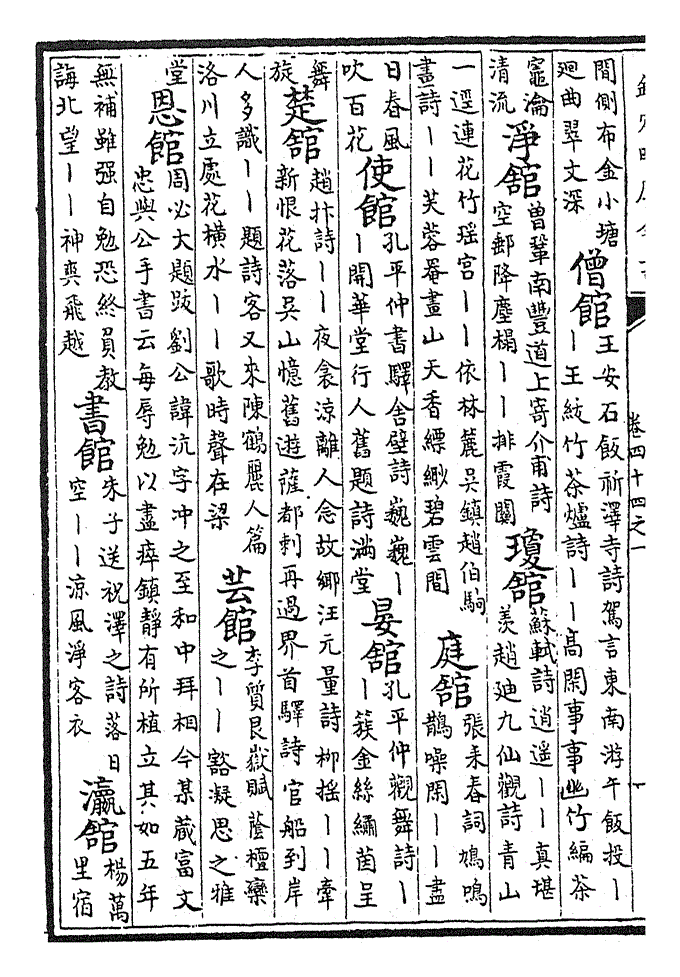 卷四十四之一
間側布金小塘
廻曲翠文深
僧館
王安石飯祈澤寺詩駕言東南游午飯投丨
丨王紋竹茶爐詩丨丨高閑事事幽竹編茶
竈淪
清流
淨館
曾鞏南豐道上寄介甫詩
空郵降塵榻丨丨排霞關
瓊館
蘇軾詩逍遥丨丨真堪
羨趙廸九仙觀詩青山
一逕連花竹瑶宫丨丨依林麓吳鎮趙伯駒
畫詩丨丨芙蓉罨畫山天香縹緲碧雲間
庭館
張耒春詞鳩鳴
鵲噪閑丨丨盡
日春風
吹百花
使館
孔平仲書驛舍壁詩巍巍丨
丨開華堂行人舊題詩滿堂
晏館
孔平仲觀舞詩丨
丨簇金絲繡茵呈
舞
旋
楚館
趙抃詩丨丨夜衾涼離人念故鄉汪元量詩柳揺丨丨牽
新恨花落吳山憶舊遊薩都剌再過界首驛詩官船到岸
人多識丨丨題詩客又來陳鶴麗人篇
洛川立處花横水丨丨歌時聲在梁
芸館
李質艮嶽賦蔭檀欒
之丨丨豁凝思之雅
堂
恩館
周必大題跋劉公諱沆字冲之至和中拜相今某蔵富文
忠與公手書云每辱勉以盡瘁鎮靜有所植立其如五年
無補雖强自勉恐終負教
誨北望丨丨神爽飛越
書館
朱子送祝澤之詩落日
空丨丨涼風淨客衣
瀛館
楊萬
里宿